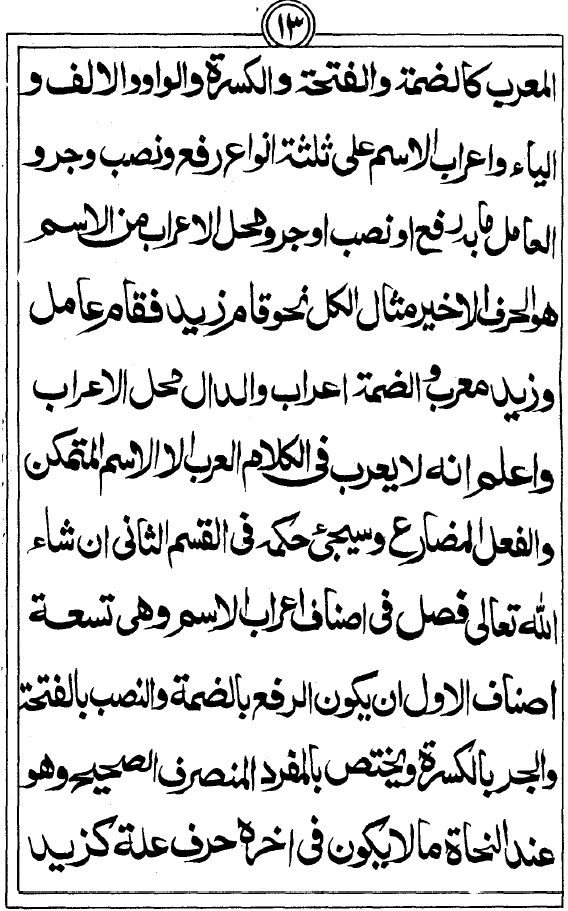 ١٣
المعرب كالضمة والفتحة والكسرة والواو والالف و
الياء واعراب الاسم على ثلثة انواع رفع ونصب وجر و
العامل ما به رفع او نصب او جر ومحل الاعراب من الاسم
هو الحرف الاخير مثال الكل نحو قام زيد فقام عامل
وزيد معرب والضمة اعراب والدال محل الاعراب
واعلم انه لا يعرب فى الكلام العرب الا الاسم المتمكن
والفعل المضارع وسيجئ حكمه فى القسم الثانى ان شاء
الله تعالى فصل فى اصناف اعراب الاسم وهى تسعة
اصناف الاول ان يكون الرفع بالضمة والنصب بالفتحة
والجر بالكسرة ويختص بالمفرد المنصرف الصحيح وهو
عند النحاة ما لا يكون فى اخره حرف علة كزيد